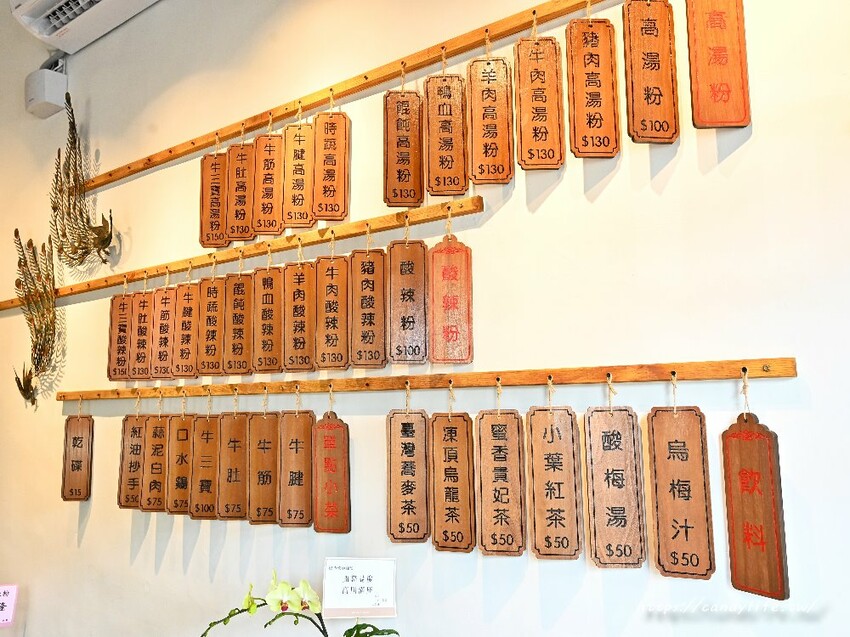 高湯粉
高湯粉 $100
豬肉高湯粉 $130
牛肉高湯粉 $130
羊肉高湯粉 $130
鴨血高湯粉 $130
餛飩高湯粉 $130
時蔬高湯粉 $130
牛腱高湯粉 $130
牛筋高湯粉 $130
牛肚高湯粉 $130
牛三寶高湯粉 $150
酸辣粉
酸辣粉 $100
豬肉酸辣粉 $130
牛肉酸辣粉 $130
羊肉酸辣粉 $130
鴨血酸辣粉 $130
餛飩酸辣粉 $130
時蔬酸辣粉 $130
牛腱酸辣粉 $130
牛筋酸辣粉 $130
牛肚酸辣粉 $130
牛三寶酸辣粉 $150
飲料
烏梅汁 $50
酸梅湯 $50
小葉紅茶 $50
蜜香貴妃茶 $50
凍頂烏龍茶 $50
臺灣蕎麥茶 $50
小菜
牛腱 $75
牛筋 $75
牛肚 $75
牛三寶 $100
口水雞 $75
蒜泥白肉 $75
紅油抄手 $50
乾碟 $15